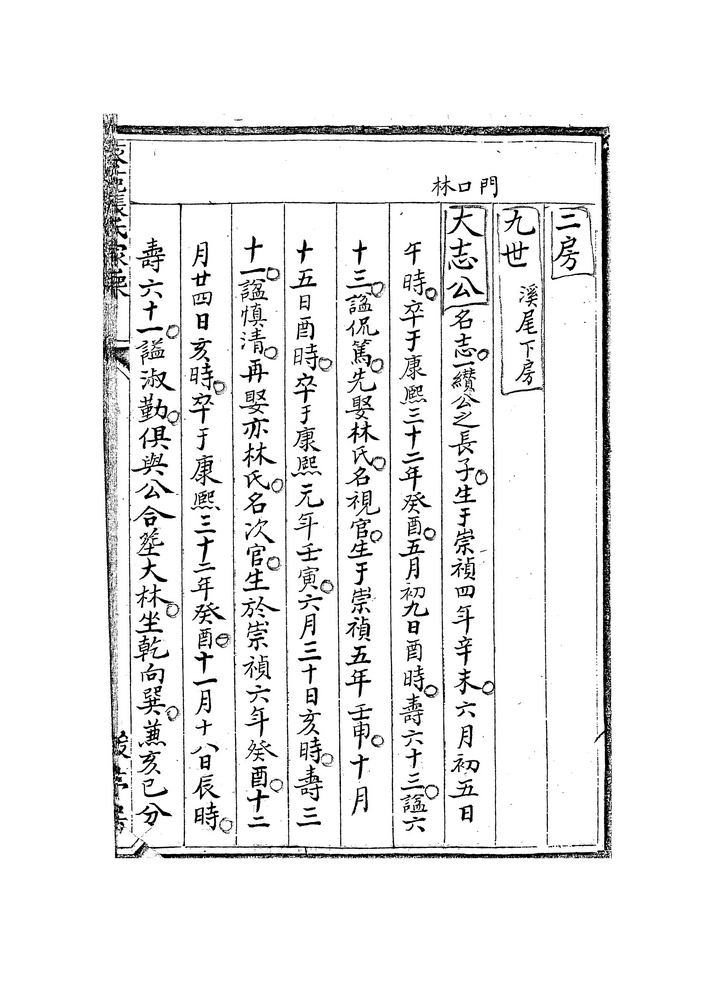 門口林
三房
九世 溪尾下房
大志公名志一纘公之長子生于崇禎四年辛未六月初五日
午時卒于康熙三十二年癸酉五月初九日酉時壽六十三謚六
十三謚侃篤先娶林氏名視官生于崇禎五年壬申十月
十五日酉時卒于康熙元年壬寅六月三十日亥時壽三
十一謚慎清再娶亦林氏名次官生於崇禎六年癸酉十二
月廿四日亥時卒于康熙三十二年癸酉十一月十八日辰時
壽六十一謚淑勤俱與公合塟大林坐乾向巽蒹亥巳分
張氏家乘